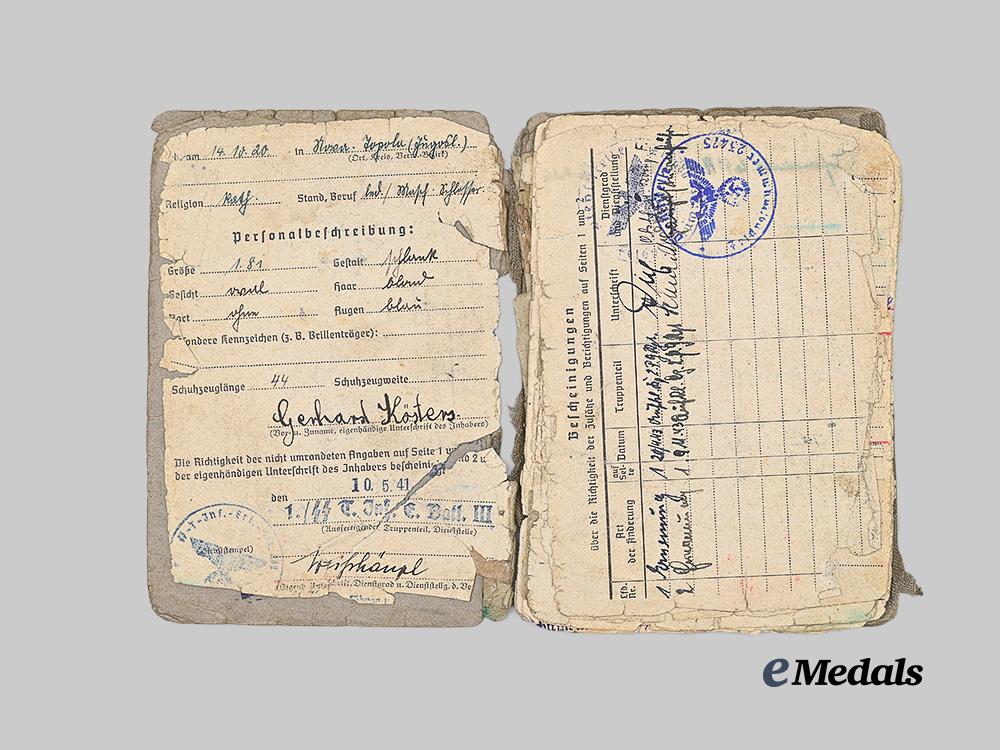 am 14.10.20 in Nova-Topola (Jugosl.)
(Ort, Kreis, Verw.-Bezirk)
Religion kath. Stand, Beruf led./ Masch. Schlosser
Personalbeschreibung:
Größe 1.81 Gestalt schlank
Gesicht oval Haar blond
Bart ohne Augen blau
Besondere Kennzeichen (z. B. Brillenträger):
Schuhzeuglänge 44 Schuhzeugweite
Gerhard Kösters
(Vor- u. Zuname, eigenhändige Unterschrift des Inhabers)
Die Richtigkeit der nicht umrandeten Angaben auf Seite 1 und 2 u
der eigenhändigen Unterschrift des Inhabers bescheinigt
den 10.5.41
1./SS T. Inf. E. Batl. III
(Ausfertigender Truppenteil, Dienststelle)
(Dienststempel)
Weißhäupl
Unterschrift, Dienstgrad u. Dienststellg. d.
Bescheinigungen
über die Richtigkeit der Zusätze und Berichtigungen auf Seiten 1 und 2
Lfd. Nr.
Art der Änderung
auf Seite
Datum
Truppenteil
Unterschrift
Dienstgrad und Dienststellung
1. Ernennung 1
2. 1 9.11.43
Feldpostnummer 23475
eMedals